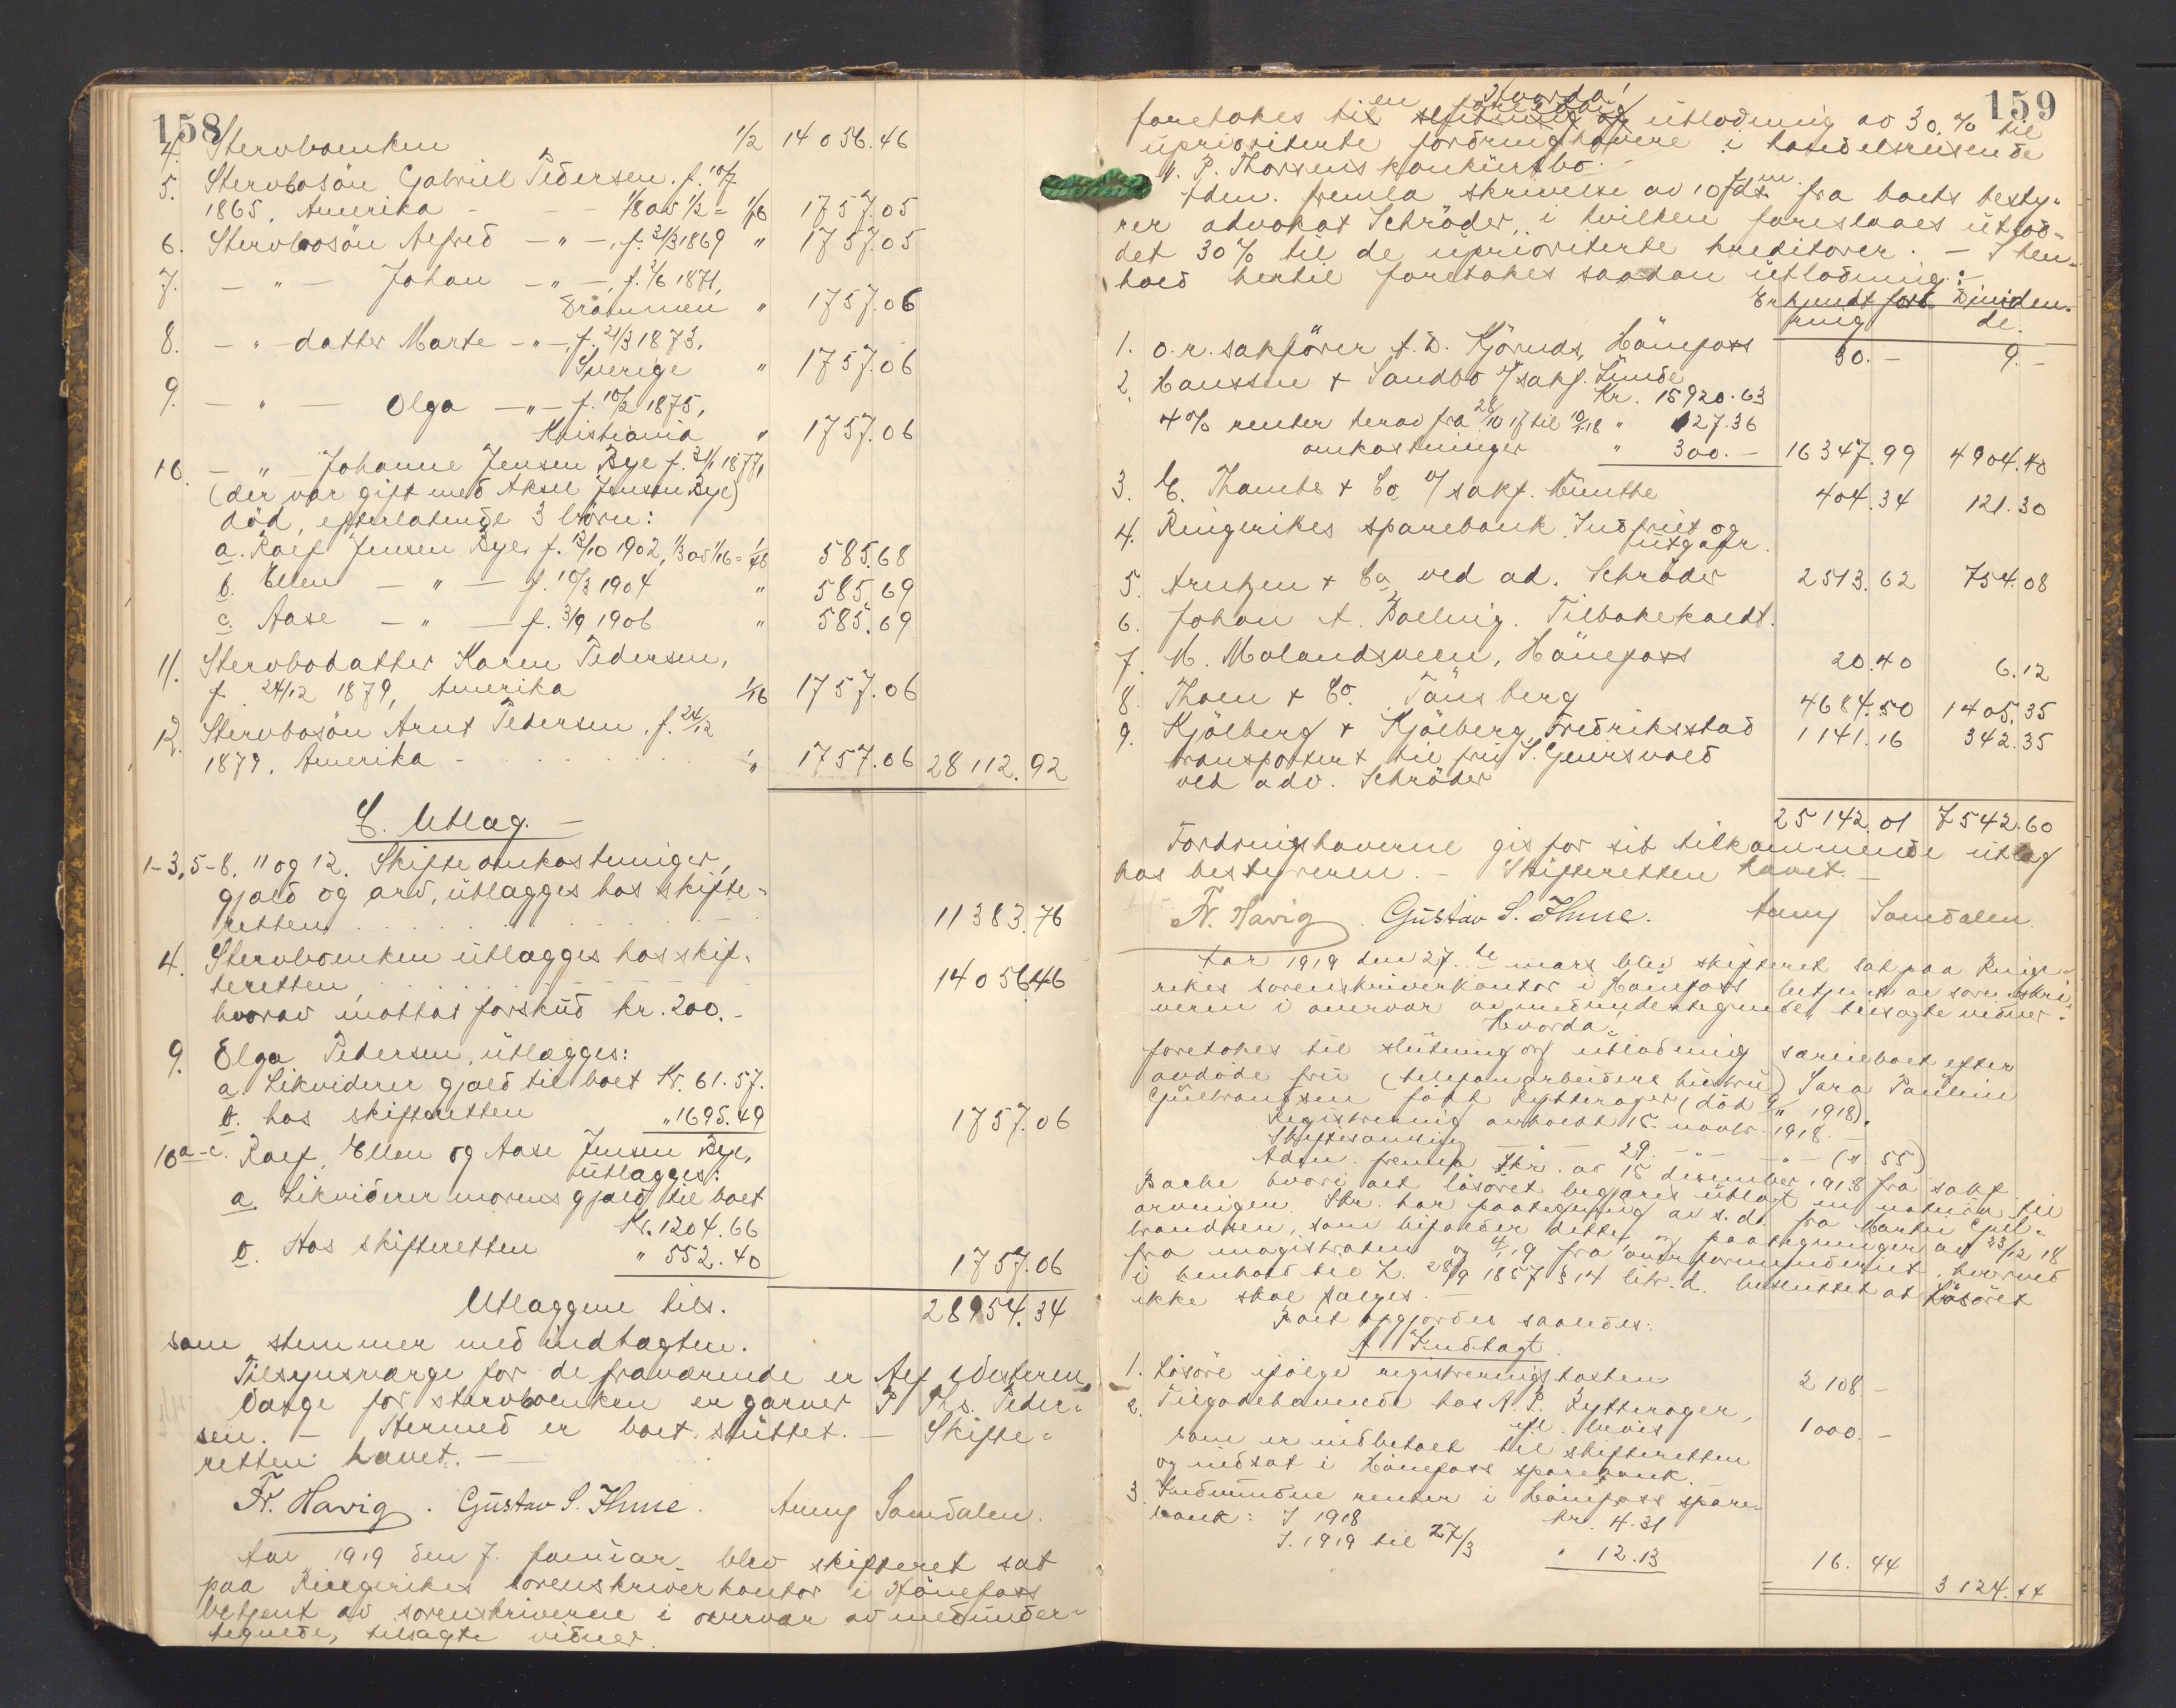 158
4. Stervboenken 1/2 14 056.46
5. Stervbosön Gabriel Pedersen. f. 10/7
1865, Amerika - - - 1/8 av 1/2 = 1/16 1757.05
6. Stervbosön Alfred - " -, f. 31/3 1869 " 1757.05
7. - " - Johan - " -, f. 2/6 1871,
Drammen " 1757.06
8. - " - datter Marte - " -, f. 21/3 1873,
Sverige " 1757.06
9. - " - Olga - " - f. 10/2 1875,
Kristiania " 1757.06
10. - " - Johanne Jensen Bye f. 31/1 1877,
(der var gift med Aksel Jensen Bye)
död, efterlatende 3 börn:
a. Ralf Jensen Bye, f. 12/10 1902, 1/3 av 1/16 = 1/48 585.68
b. Ellen - " - f. 10/3 1904 " 585.69
c. Aase - " - f. 3/9 1906 " 585.69
11. Stervbodatter Karen Pedersen,
f. 24/12 1879, Amerika 1/16 1757.06
12. Stervbosön Arnt Pedersen, f. 24/12
1879, Amerika - " 1757.06 28 112.92
C. Utlag. -
1-3, 5-8, 11 og 12. Skifteomkostninger,
gjæld og arv, utlægges hos skifte-
retten 11 383.76
4. Stervboenken utlægges hos skif-
teretten 14 056.46
hvorav mottat forskud kr. 200.-
9. Olga Pedersen, utlægges:
a. Likviderer gjæld til boet Kr. 61.57.
b. hos skifteretten " 1695.49 1757.06
10 a-c. Ralf, Ellen og Aase Jensen Bye,
utlægges:
a. Likviderer morens gjæld til boet
Kr. 1204.66
b. Hos skifteretten " 552.40 1757.06
Utlæggene tils. 28954.34
som stemmer med indtægten.
Tilsynsværge for de fraværende er Alf Westeren,
Værge for stervboenken er garver P. Ths. Peder-
sen. - Hermed er boet sluttet. - Skifte-
retten hævet. -
Fr. Havig. Gustav S. Ihme. Anny Somdalen.
Aar 1919 den 7. januar blev skifteret sat
paa Ringerikes sorenskriverkontor i Hönefoss
betjent av sorenskriveren i overvær av medunder-
tegnede, tilsagte vidner.
159
Hvorda!
foretokes til en utlodning av 30 % til
uprioriterte fordringshavere i handelsreisende
P. Thorsens konkursbo. -
Adm. fremla skrivelse av 10 ds. fra boets besty-
rer advokat Schröder, i hvilken foreslaaes utlod-
det 30 % til de uprioriterte kreditorer. - I hen-
hold hertil foretokes saadan utlodning: -
Erkjendt ford- Dividen-
ring de.
1. o.r. sakförer A. D. Kjörnds, Hönefoss 30.- 9.-
2. Hanssen + Sandbo v/ sakf. Lunde
Kr. 15920.63
4 % renter herav fra 28/10 17 til 10/1 18 " 127.36
omkostninger " 300.- 16347.99 4904.40
3. C. Thambs + Co. v/ sakf. Münthe 404.34 121.30
4. Ringerikes sparebank. Indfriet og
utgaar.
5. Arntzen + Co, ved ad. Schröder 2513.62 754.08
6. Johan A. Bolling. Tilbakekaldt.
7. M. Molandsveen, Hönefoss 20.40 6.12
8. Thoen + Co. Tönsberg 4684.50 1405.35
9. Kjölberg + Kjölberg, Fredriksstad 1141.16 342.35
transportert til fru S. Gjersvold
ved adv. Schröder
25142.01 7542.60
Fordringshaverne gis for sit tilkommende utlæg
hos bestyreren. - Skifteretten hævet. -
Fr. Havig. Gustav S. Ihme. Anny Somdalen.
Aar 1919 den 27. de mars blev skifteret sat paa Ringe-
rikes sorenskriverkontor i Hönefoss betjent av sorenskri-
veren i overvær av medundertegnede, tilsagte vidner.
Hvorda!
foretokes til slutning og utlodning særeieboet efter
avdöde fru (telefonarbeiders hustru) Sara Pauline
Gulbrandsen född Rytterager, (död 9/11 1918).
Registrering avholdt 15. novbr. 1918. -
Skiftesamling - " - 29. - " - (s. 55)
Adm. fremla skr. av 15 desember 1918 fra sakf.
Bache hvori det lösöret begjæres utlagt in natura til
arvingen. Skr. har paategning av s.d. fra Martin Gul-
brandsen, som bifalder dette, og paategninger av 23/12 18
fra magistraten og 4/1 19 fra overformynderiet, hvorved
i henhold til L. 28/9 1857 § 14 litr. d. besluttet at lösöret
ikke skal sælges. -
Boet opgjordes saaledes:
A. Indtægt.
1. Lösöre ifölge registreringstaksten 2108.-
2. Tilgodehavende hos A. P. Rytterager,
ifl. bevis 1000.-
som er indbetalt til skifteretten
og indsat i Hönefoss sparebank.
3. Indvundne renter i Hönefoss spare-
bank: I 1918 kr. 4.31
I 1919 til 27/3 " 12.13 16.44
3124.44